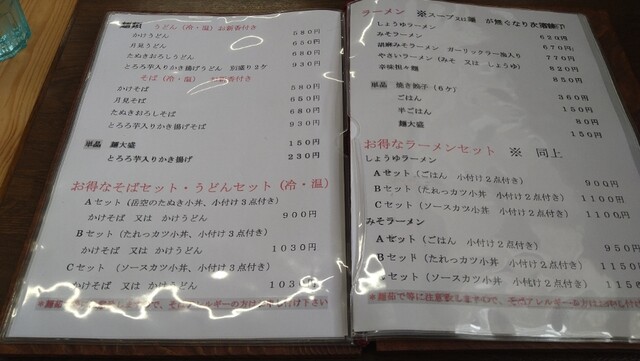 うどん（冷・温）お新香付き
かけうどん 580円
月見うどん 650円
たぬきおろしうどん 680円
とろろ芋入りかき揚げうどん 別盛り2ケ 930円
そば（冷・温） お新香付き
かけそば 580円
月見そば 650円
たぬきおろしそば 680円
とろろ芋入りかき揚げそば 930円
単品 麺大盛 150円
とろろ芋入りかき揚げ 230円
お得なそばセット・うどんセット（冷・温）
Aセット（岳空のたぬき小丼、小付け3点付き）
かけそば 又は かけうどん 900円
Bセット（たれっカツ小丼、小付け3点付き）
かけそば 又は かけうどん 1030円
Cセット （ソースカツ小丼、小付け3点付き）
かけそば 又は かけうどん 1030円
ラーメン ※スープ又は麺 が無くなり次第終了
しょうゆラーメン 620円
みそラーメン 670円
胡麻みそラーメン ガーリックラー油入り 770円
やさいラーメン（みそ 又は しょうゆ） 620円
辛味担々麺 850円
単品 焼き餃子（6ケ） 360円
ごはん 150円
半ごはん 80円
麺大盛 150円
お得なラーメンセット ※ 同上
しょうゆラーメン
Aセット（ごはん 小付け2点付き） 900円
Bセット（たれっカツ小丼 小付け2点付き） 1100円
Cセット（ソースカツ小丼 小付け2点付き） 1100円
みそラーメン
Aセット（ごはん 小付け2点付き） 950円
Bセット（たれっカツ小丼 小付け2点付き） 115
セット（ソースカツ小丼 小付け2点付き） 115